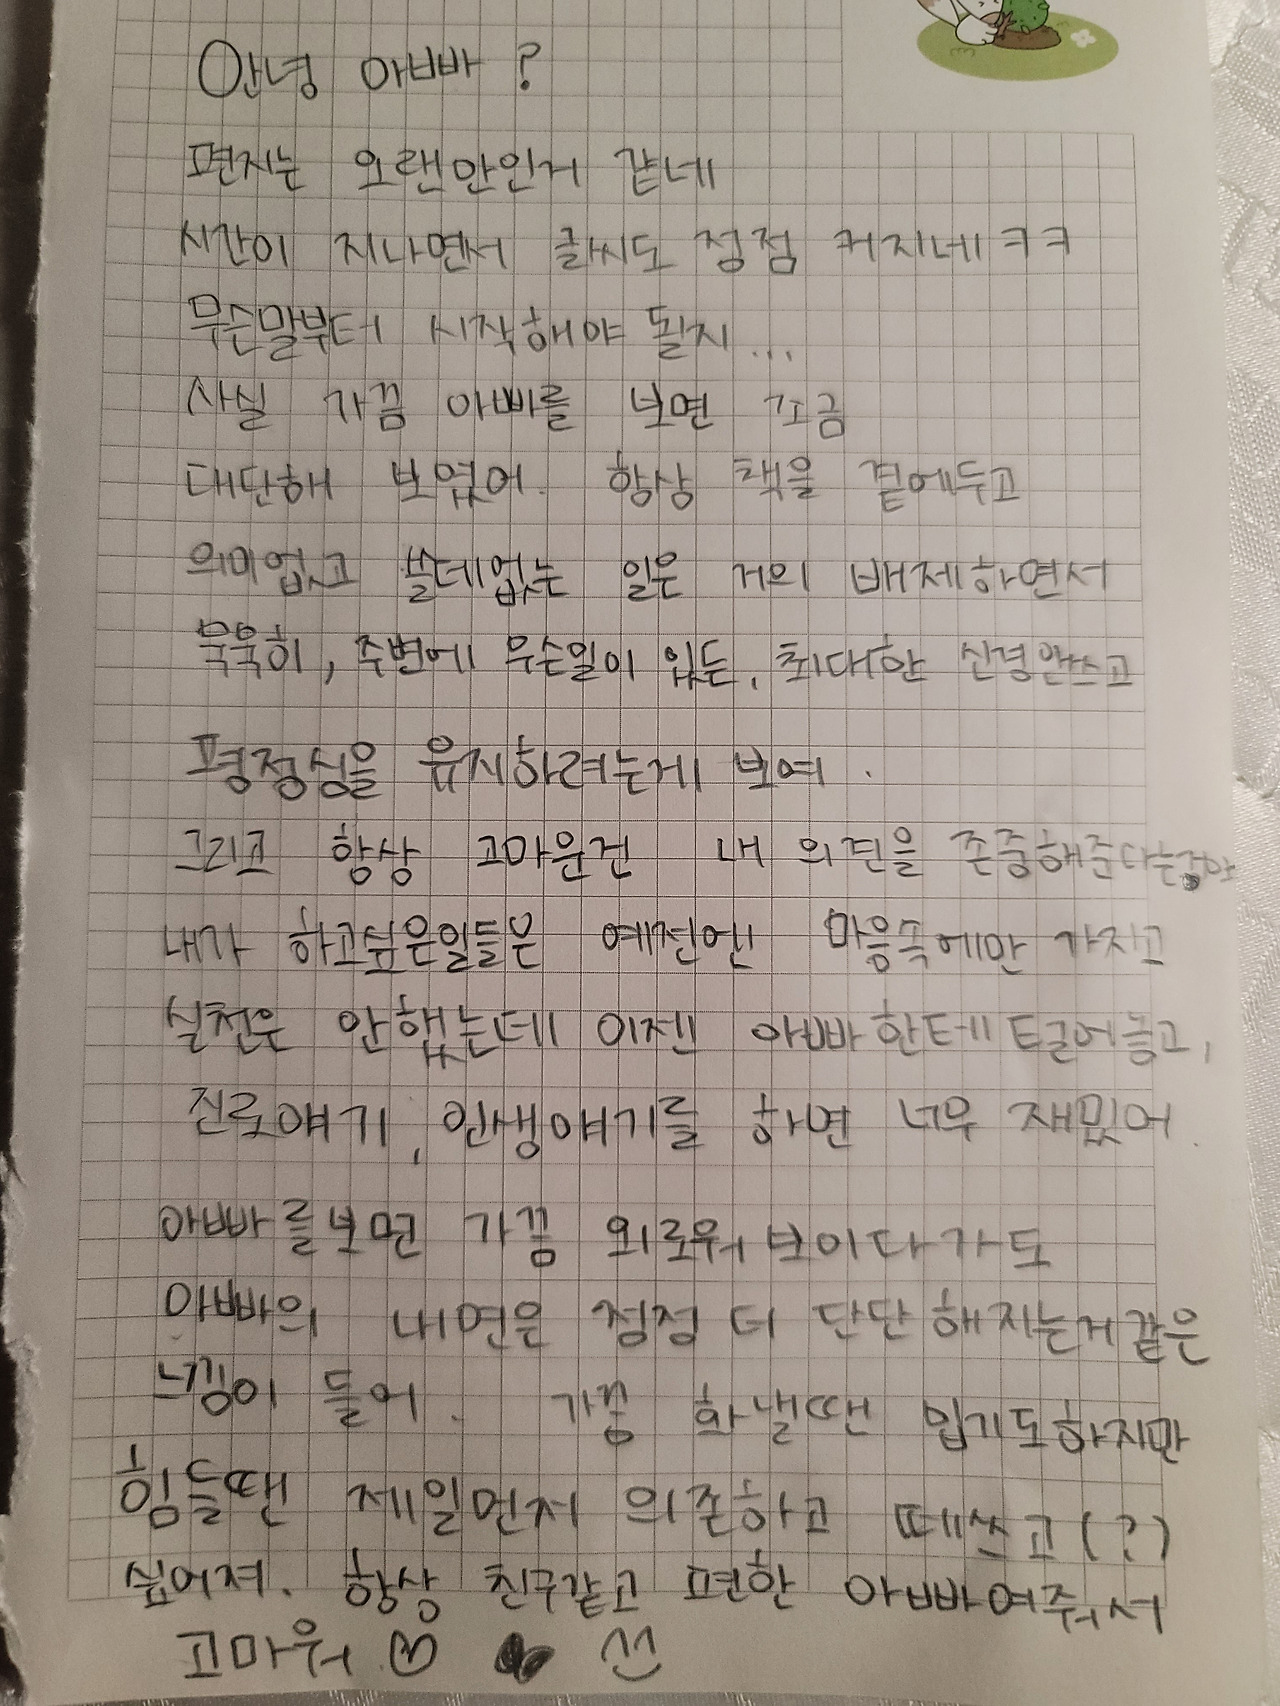 안녕 아빠?
편지는 오랜만인거 같네
시간이 지나면서 글씨도 점점 커지네ㅋㅋ
무슨말부터 시작해야 될지...
사실 가끔 아빠를 보면 조금
대단해 보였어. 항상 책을 곁에두고
의미없고 쓸데없는 일은 거의 배제하면서
묵묵히, 주변에 무슨일이 있든, 최대한 신경안쓰고
평정심을 유지하려는게 보여.
그리고 항상 고마운건 내 의견을 존중해준다는거야
내가 하고싶은일들은 예전엔 마음속에만 가지고
실천은 안했는데 이젠 아빠한테 털어놓고,
진로얘기, 인생얘기를 하면 너무 재밌어.
아빠를보면 가끔 외로워보이다가도
아빠의 내면은 점점 더 단단해지는거같은
느낌이 들어. 가끔 화낼땐 밉기도하지만
힘들땐 제일먼저 의존하고 떼쓰고(?)
싶어져. 항상 친구같고 편한 아빠여줘서
고마워♡